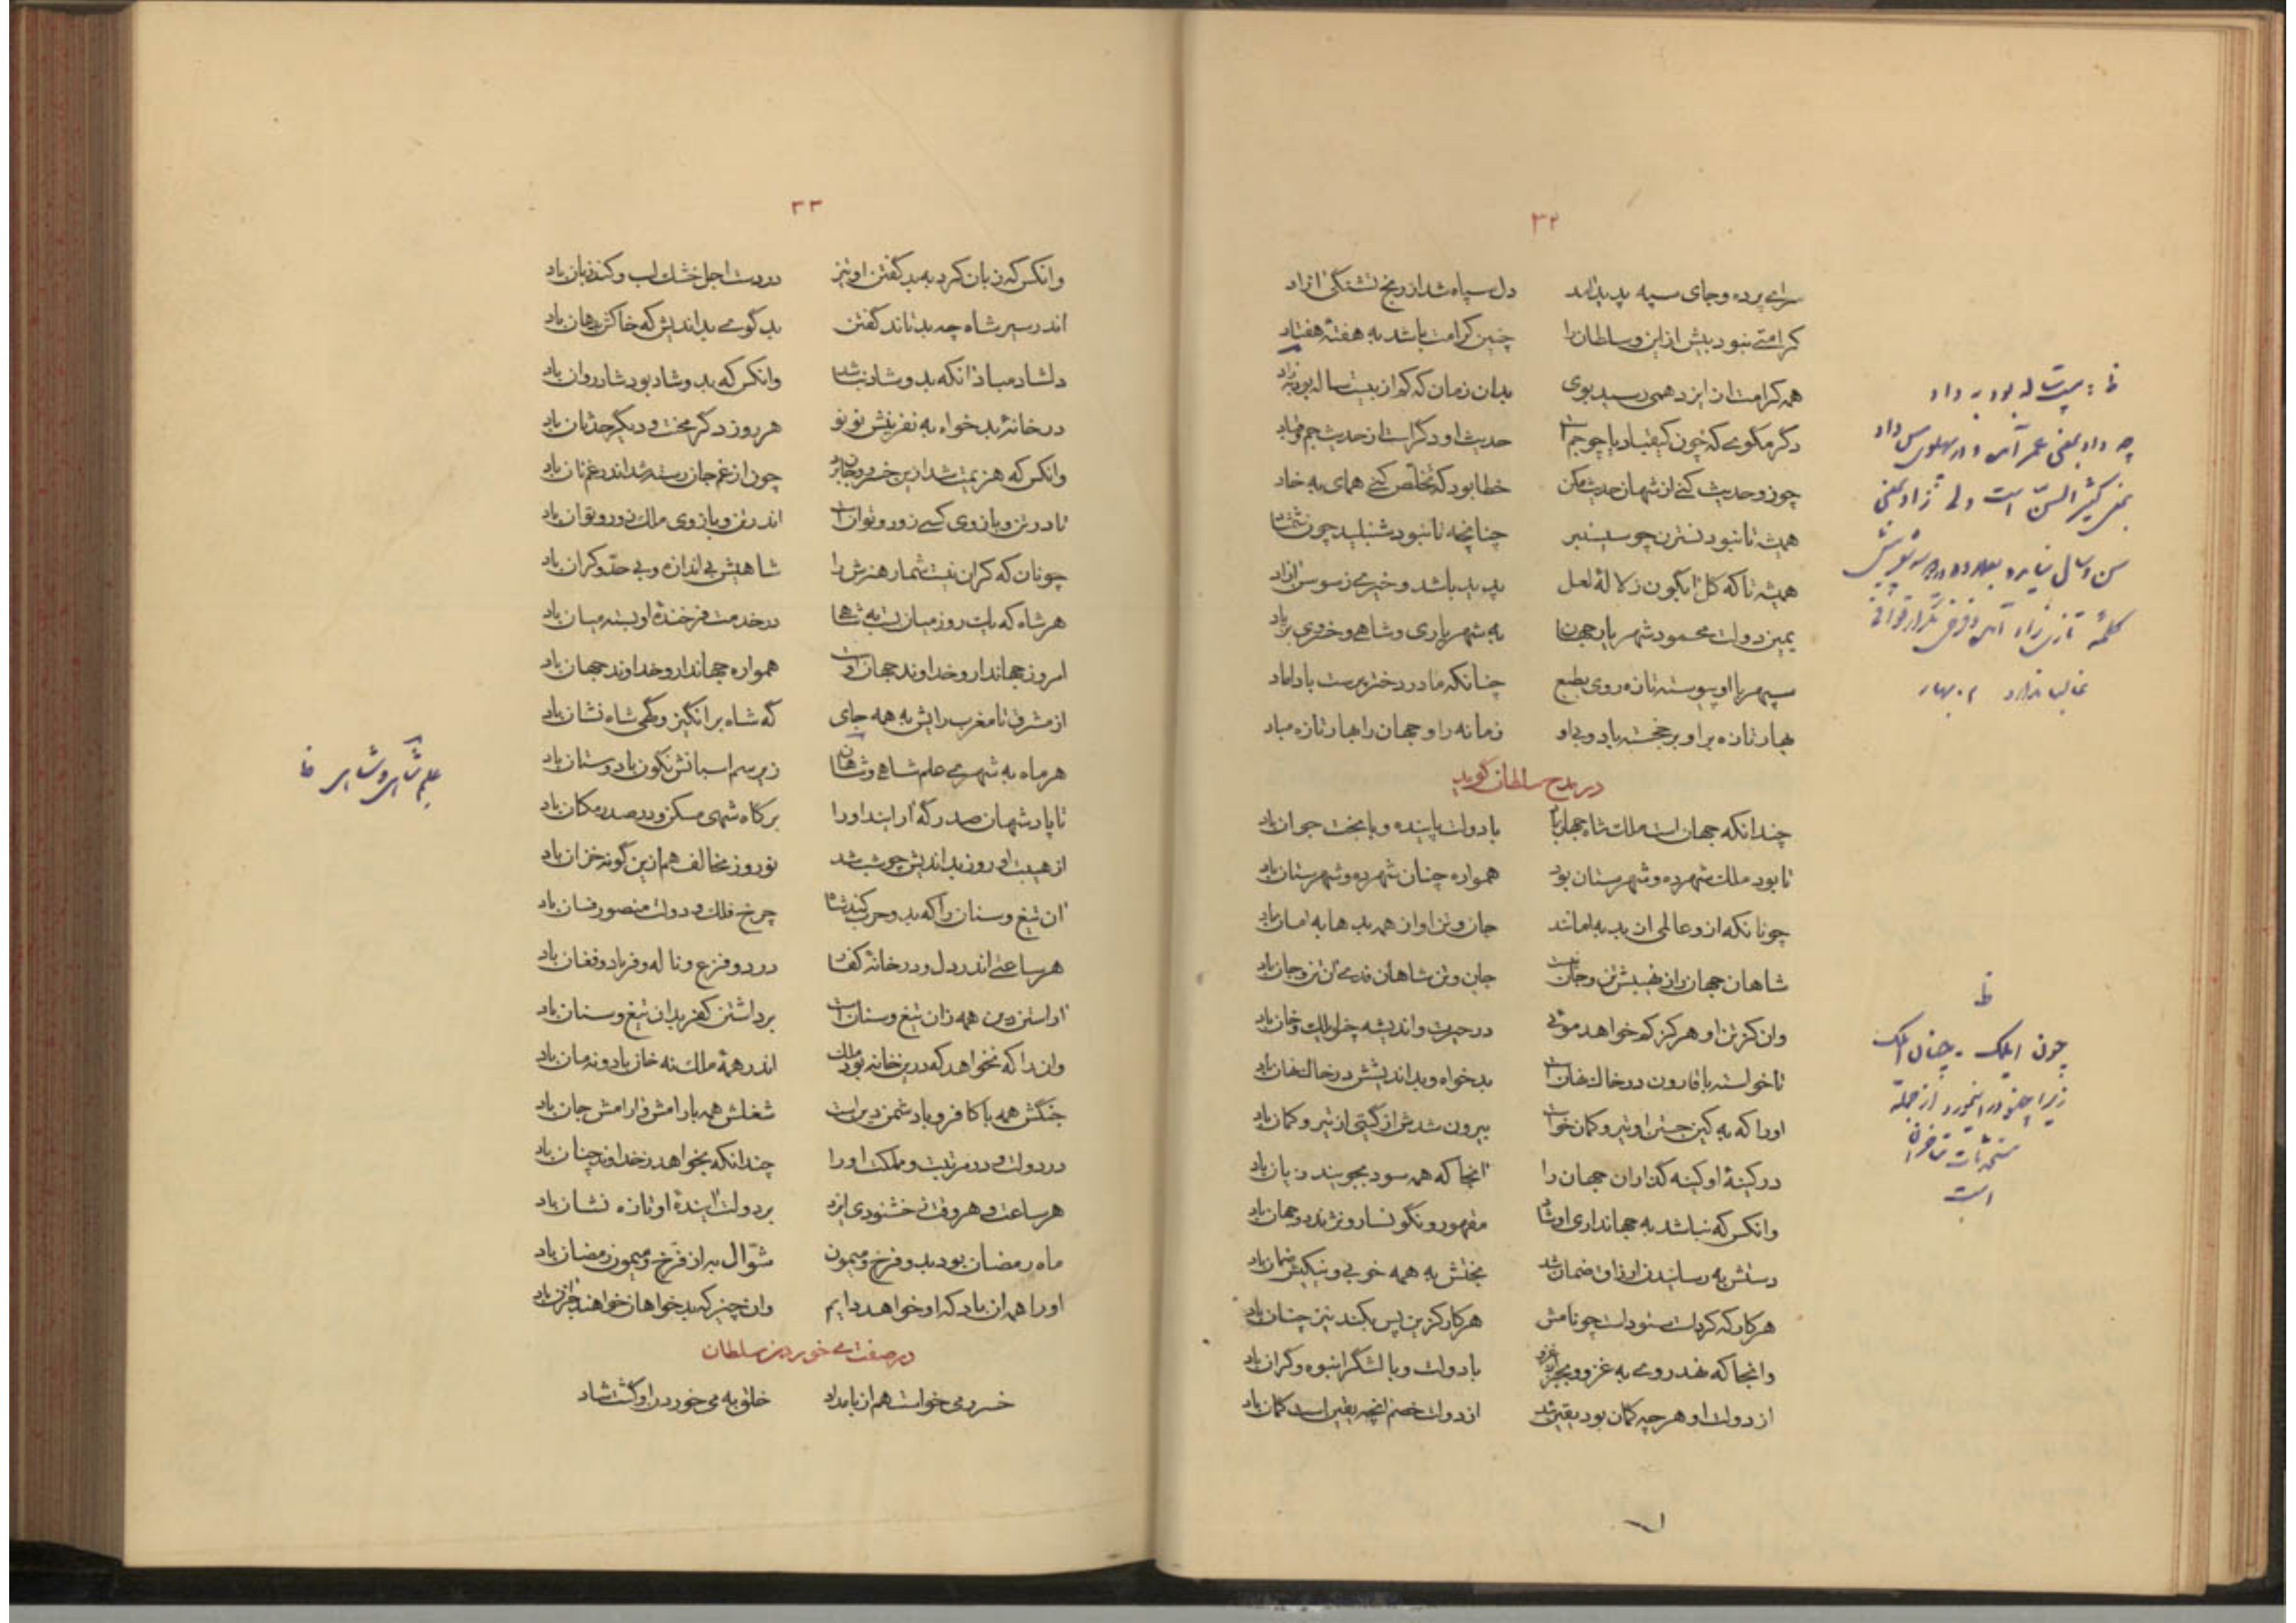 ۳۲
سرای پرده و جای سپه پدید آمد دل سپاه شد از رنج تشنگی آزاد
کرامتی نبود بیش ازین و سلطان را چنین کرامت باشد به هفتهٔ هفتاد
همه کرامت از ایزد همی رسید بوی بدان زمان که کم از بیست ساله بود بزاد
دگر مگوی که چون کیقباد یا چو جم است حدیث او دگر است از حدیث جم و قباد
چو زو حدیث کنی از شهان حدیث مکن خطا بود که تخلص کنی همای به خاد
همیشه تا نبود نسترن چو سیسنبر چنانچه تا نبود شنبلید چون شمشاد
همیشه تا که گل آبگون ز لالهٔ لعل پدید باشد و خیری ز سوسن آزاد
یمین دولت محمود شهریار جهان به شهریاری و شاهی و خسروی بزیاد
سپهر با او پیوسته تازه روی بطبع چنانکه مادر دختر پرست با داماد
بهار تازه بر او بر خجسته باد و بی او زمانه را و جهان را بهار تازه مباد
در مدح سلطان گوید
چندانکه جهان است ملک شاه جهان باد با دولت پاینده و با بخت جوان باد
تا بود ملک شهرده و شهرستان بود همواره چنان شهرده و شهرستان باد
چونانکه ازو عالمی از بد به امانند جان و تن او از همه بدها به امان باد
شاهان جهان را ز نهیبش تن و جان نیست جان و تن شاهان فدی آن تن و جان باد
وان کز تن او هرگز کم خواهد مویی در حسرت و اندیشه چو ایلک و خان باد
تا خواسته با قارون در خاک نهان است بدخواه و بداندیشش در خاک نهان باد
اورا که به کین جستن او تیر و کمان خواست بیرون شدنش از گیتی از تیر و کمان باد
در کینهٔ او کینه گذاران جهان را آنجا که همه سود بجویند زیان باد
وانکس که نباشد به جهانداری او شاد مقهور و نگونسار و نژند دو جهان باد
دستش به رسانیدن ارزاق ضمان شد بختش به همه خوبی و نیکیش ضمان باد
هر کار که کرد است ستوده است چو نامش هر کار کزین پس بکند نیز چنان باد
وانجا که نهد روی به غزو و بجز از غزو با دولت و با لشگر انبوه و گران باد
از دولت او هرچه گمان بود یقین شد از دولت خصم آنچه یقین است گمان باد
بیست ساله بود به داد
چون ایلک و چنان ایلک
است
۳۳
وانکس که زبان کرد به بد گفتن او تیز در دست اجل خشک لب و کند زبان باد
اندر سیر شاه چه بد تاند گفتن بد گوی بداندیش که خاکش بدهان باد
دلشاد مباد آنکه بدو شاد نباشد وانکس که بدو شاد بود شاد روان باد
در خانهٔ بدخواه به نفرینش نو نو هر روز دگر محنت و دیگر حدثان باد
وانکس که هزیمت شد ازین خسرو و جان برد چون از غم جان رسته شد اندر غم نان باد
تا در تن و بازوی کسی زور و توان است اندر تن و بازوی ملک زور و توان باد
چونان که کران نیست شمار هنرش را شاهیش بی اندازه و بی حد و کران باد
هر شاه که یک روز میان بست به شاهی در خدمت فرخندهٔ او بسته میان باد
امروز جهاندار و خداوند جهان اوست همواره جهاندار و خداوند جهان باد
از مشرق تا مغرب رایش به همه جای گه شاه برانگیز و گهی شاه نشان باد
هر ماه به شهری علم شاهی و شاهان زیر سم اسبانش نگون باد و ستان باد
تا پادشهان صدر گه آرایند او را بر گاه شهی مسکن و در صدر مکان باد
از هیبت او روز بداندیش چو شب شد نوروز مخالف هم ازین گونه خزان باد
آن تیغ و سنان را که بدو حرب کند شاه چرخ فلک و دولت منصور فسان باد
هر ساعتی اندر دل و در خانهٔ کفار درد و فزع و ناله و فریاد و فغان باد
آراستن دین همه زان تیغ و سنان است برداشتن کفر بدان تیغ و سنان باد
وان را که نخواهد که درین خانه بود ملک اندر همهٔ ملک نه خان باد و نه مان باد
جنگش همه با کافر و با دشمن دین است شغلش همه با رامش و آرامش جان باد
در دولت و در مرتبت و مملکت او را چندانکه بخواهد ز خداوند چنان باد
هر ساعت و هر وقت ز خشنودی ایزد بر دولت آیندهٔ او تازه نشان باد
ماه رمضان بود بدو فرخ و میمون شوّال به از فرّخ و میمون رمضان باد
او را همه آن باد که او خواهد دایم وان چیز که بدخواهان خواهند جز آن باد
در صفت می خوردن سلطان
خسرو می خواست هم از بامداد خلق به می خوردن او گشت شاد
علم شاهی و شاهی